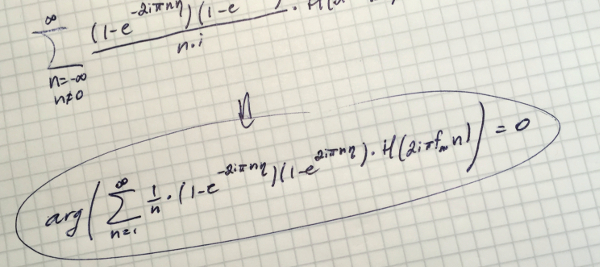 ∞
∑ (1-e^{-2iπnη})(1-e
n=-∞ n·i
n≠0
⇓
arg(∑_{n=1}^{∞} 1/n · (1-e^{-2iπnη})(1-e^{2iπnη}) · H(2iπf_m n)) = 0